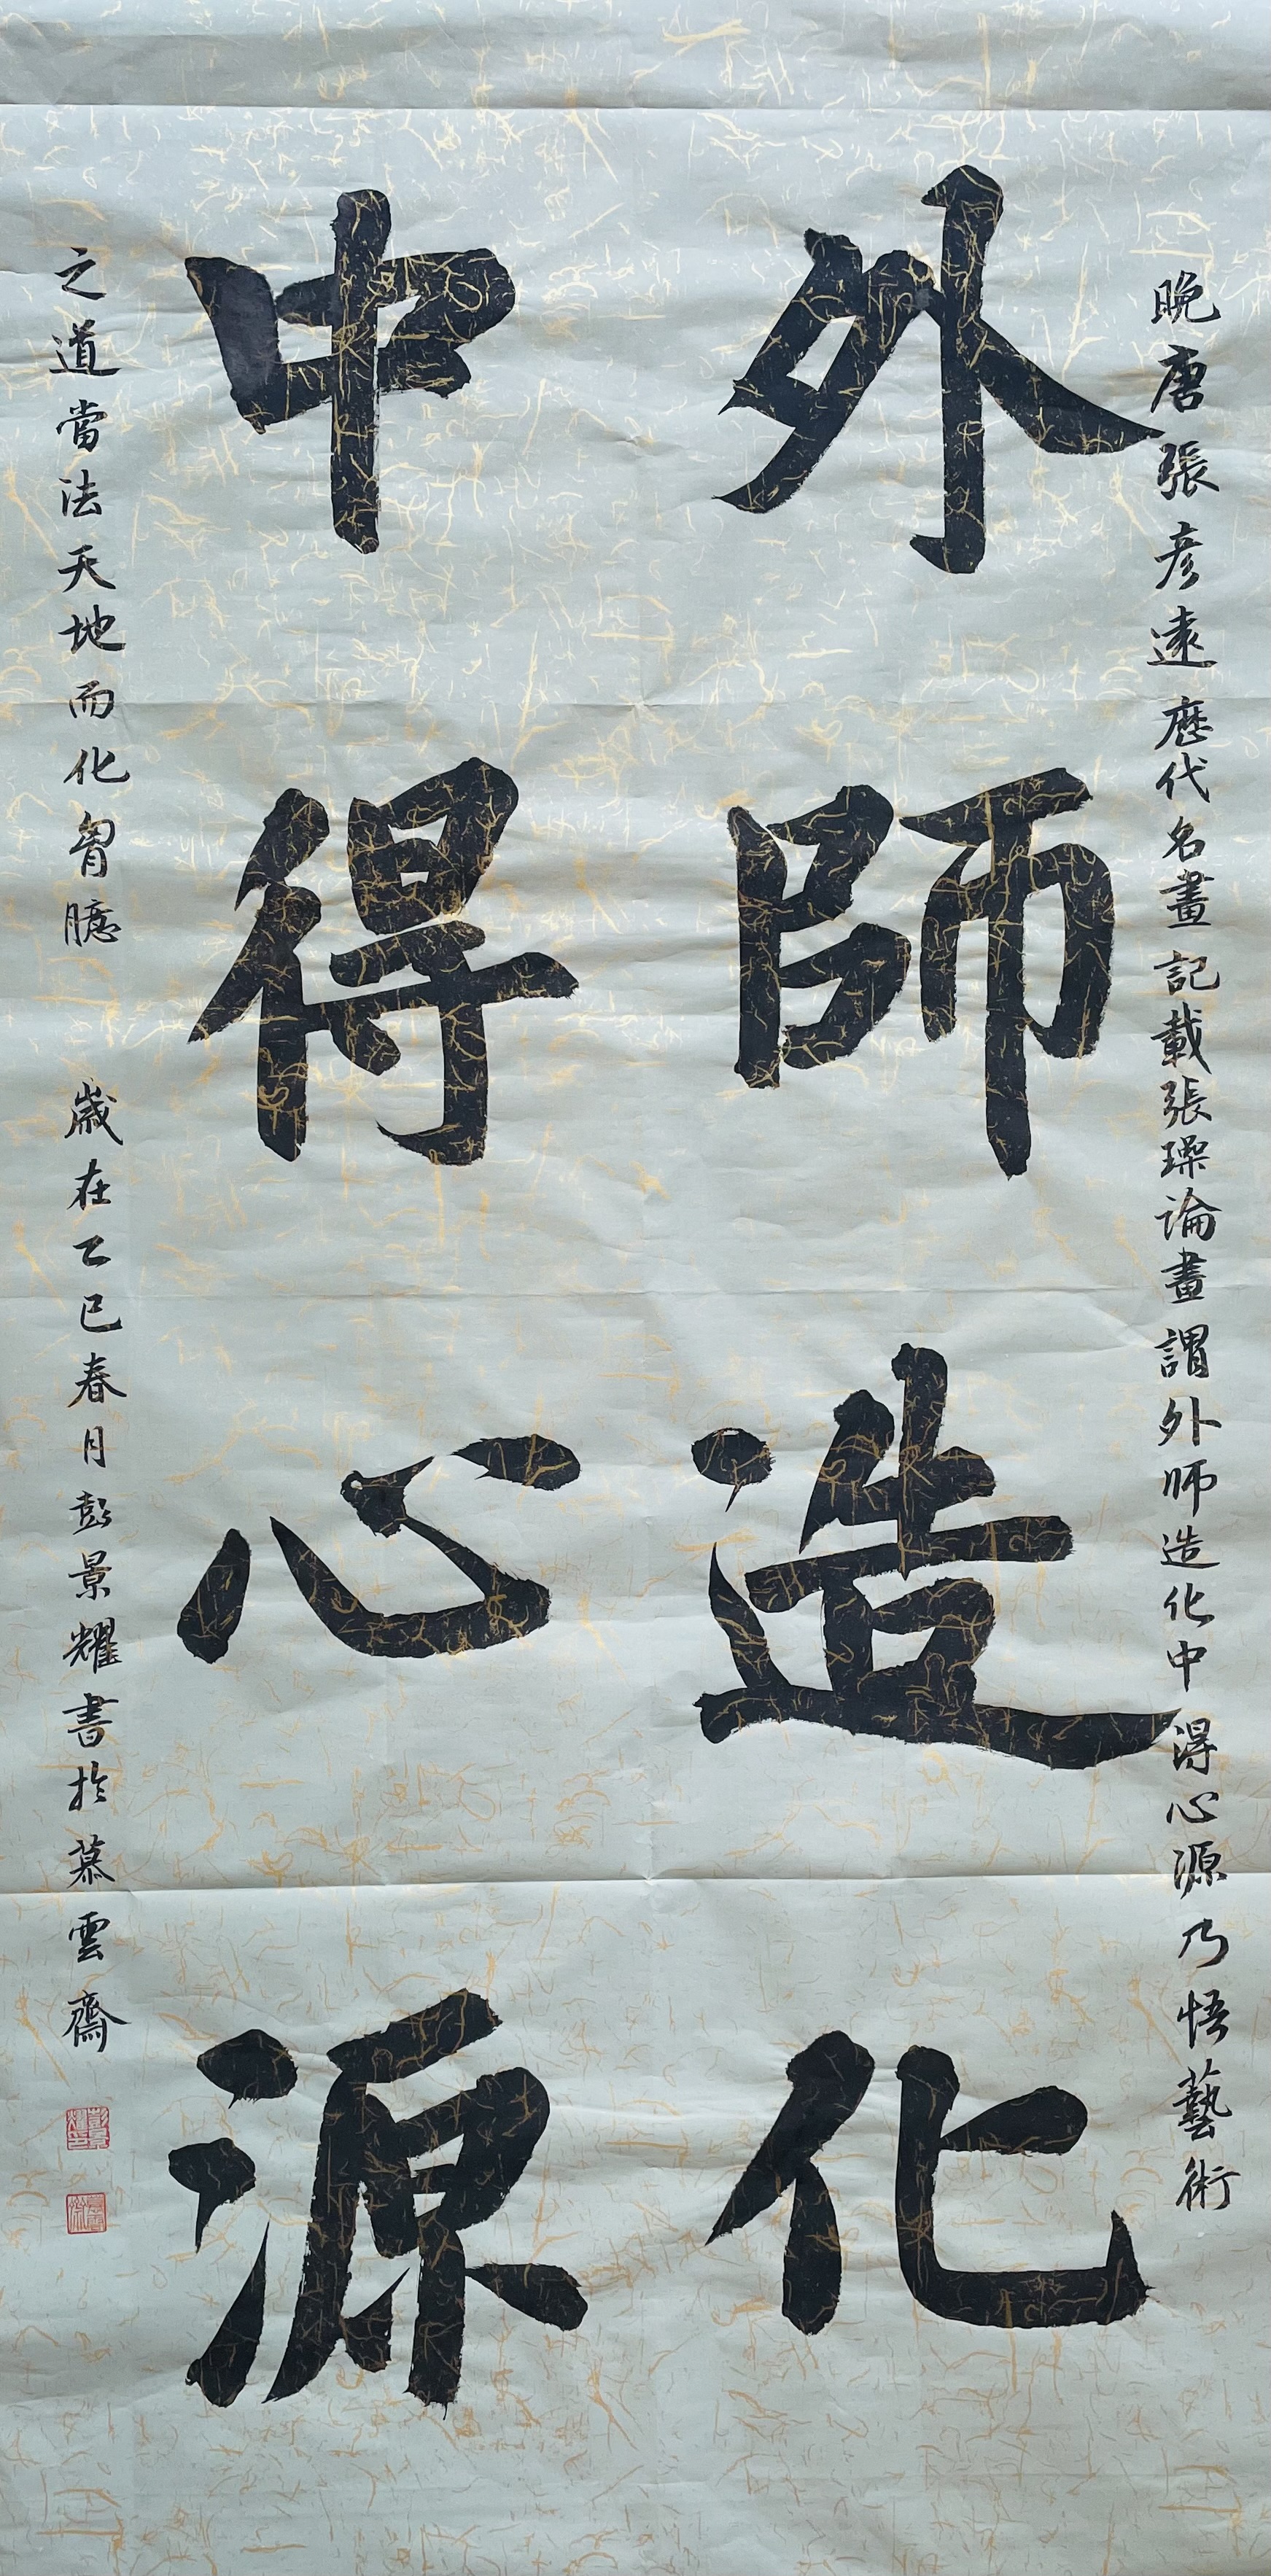 晚唐張彥遠歷代名畫記載張璪論畫謂外師造化中得心源乃悟藝術
外師造化
中得心源
之道當法天地而化胷臆 歲在乙巳春月彭景耀書於慕雲齋
彭景耀印
慕雲齋